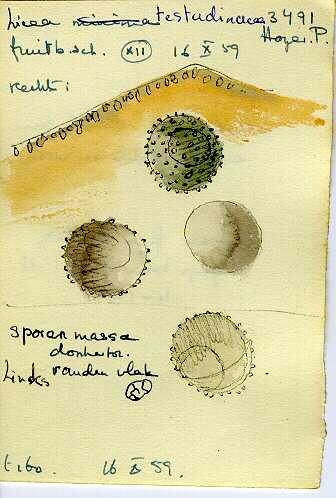 Licea minima testudinacea 3491
fruitb. sch. XII 16 X 59 Hoger. P.
rechts:
sporen massa
donker
Links ronden vlak
16 X 59.